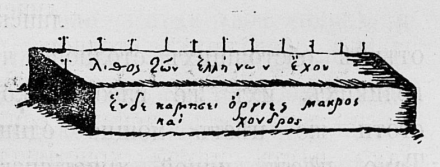 λιθος ζῶν ἑλληνων ἔχον
ἕνδεκα πηχει ὀργυες μακρος
καὶ χονδρος